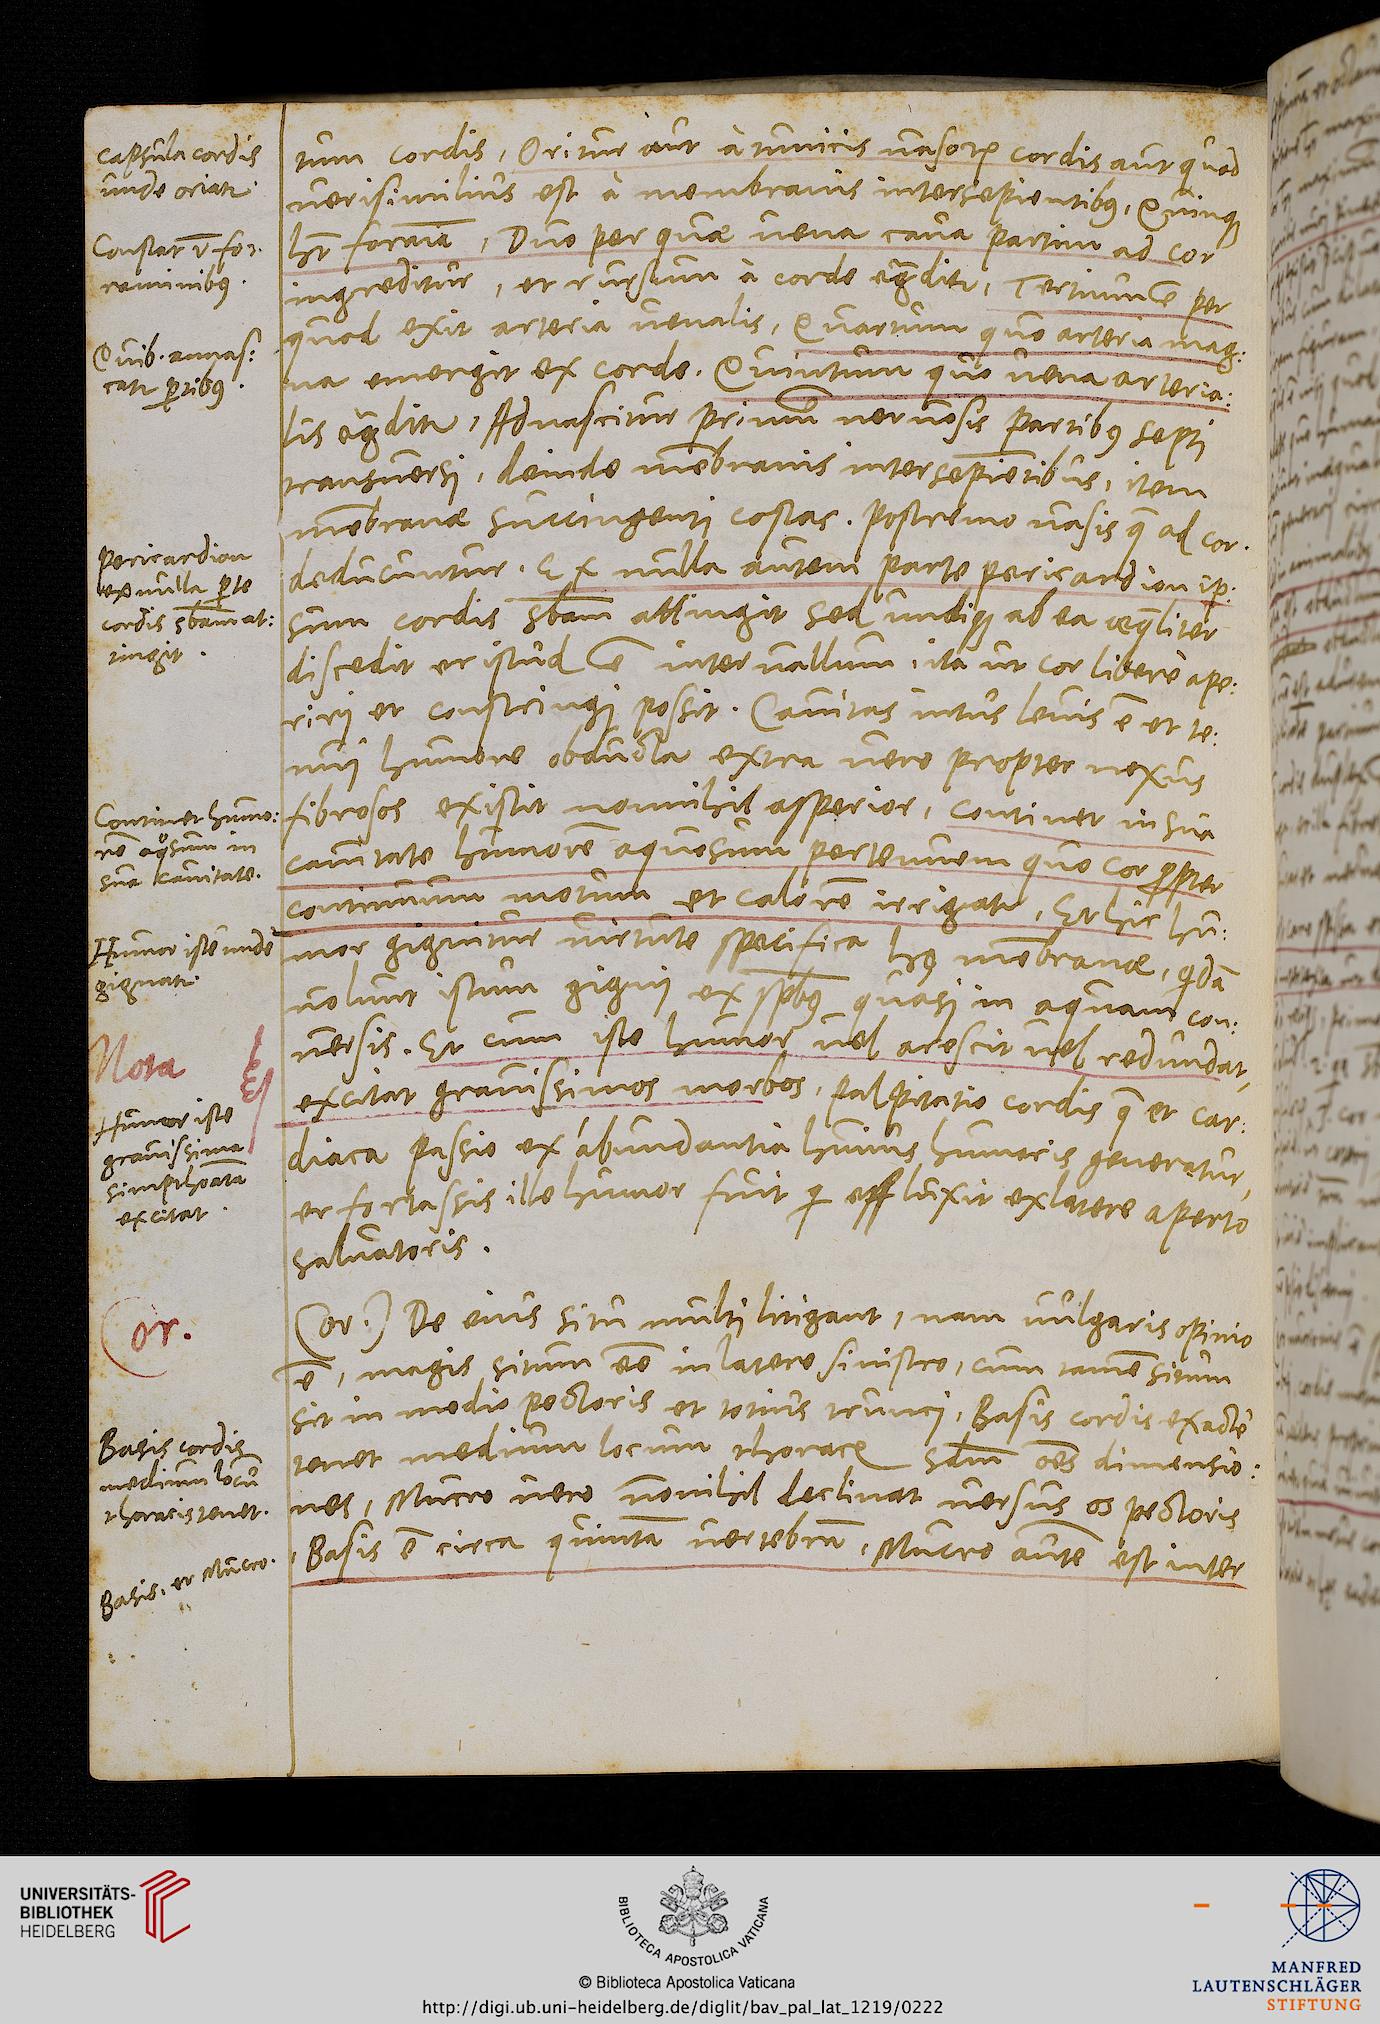 capsula cordis
unde oriatr.
Constat v forː
raminibꝰ.
Quib. annasː
catr ꝑtibꝰ.
pericardion
ex nulla ꝑte
cordis sb̄am atː
tingit.
Continet humoː
rē aqͦsum in
sua cauitate.
Humor iste unde
gignatr.
Nota
Humor iste
grauissima
simpthoāta
excitat.
Cor.
Basis cordis
medium locū
thoracis tenet.
Basis. et Mucro.
tum cordis, Oritur aut à tunicis uasorꝝ cordis aut quod
uerisimilius est à membranis intersepientibꝰ, Quinqꝫ
hr̄t foraīa, Duo per quæ uena caua partim ad cor
ingreditur, et rursum à corde eg̃ditr, Tertium ē per
quod exit arteria uenalis, Quartum quo arteria magː
na emergit ex corde. Quintum quo uena arteriaː
lis eg̃ditr, Adnascitur primū neruosis partibꝰ septi
transuersi, deinde mēbranis intersepiētibus, item
mēbranæ succingenti costas. postremo uasis q̄ ad cor.
deducuntur. Ex nulla autem parte pericardion ipː
sum cordis sb̄am attingit sed undiqꝫ ab ea æq̄liter
discedit et istud ē interuallum, ita ut cor liberè apeː
riri et constringi possit. Cauitas intus leuis ē et teː
nui humore obducta extra uero propter nexus
fibrosos existit nonnihil asperior, continet in sua
cauitate humorē aquosum pertenuem quo cor ꝓpter
continuum motum et calorē irrigatr, Et hic huː
mor gignitur uirtute specifica hꝰ mēbranæ, qdā
uolunt istum gigni ex sp̄bꝰ quasi in aquam conː
uersis. Et cum iste humor uel arescit uel redundat,
excitat grauissimos morbos, palpitatio cordis q̄ et carː
diaca passio ex abundantia huius humoris generatur,
et fortassis ille humor fuit q effluxit ex latere aperto
saluatoris.
Cor.) De eius situ multi litigant, nam uulgaris opinio
ē, magis situm eē in latere sinistro, cum tamē situm
sit in medio pectoris et totius trunci, Basis cordis exacte
tenet medium locum thoracꝭ sd̄m oēs dimensioː
nes, Mucro uero nonnihil declinat uersus os pectoris
, Basis ē circa quintā uertebrā, Mucro autē est inter
UNIVERSITÄTS-
BIBLIOTHEK
HEIDELBERG
BIBLIOTECA APOSTOLICA VATICANA
© Biblioteca Apostolica Vaticana
http://digi.ub.uni-heidelberg.de/diglit/bav_pal_lat_1219/0222
MANFRED
LAUTENSCHLÄGER
STIFTUNG